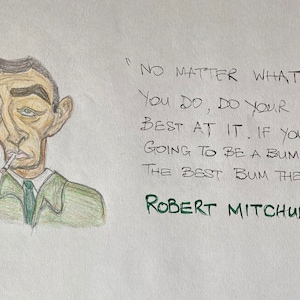 "NO MATTER WHAT
YOU DO, DO YOUR
BEST AT IT. IF YO
GOING TO BE A BUM
THE BEST BUM THE
ROBERT MITCHU